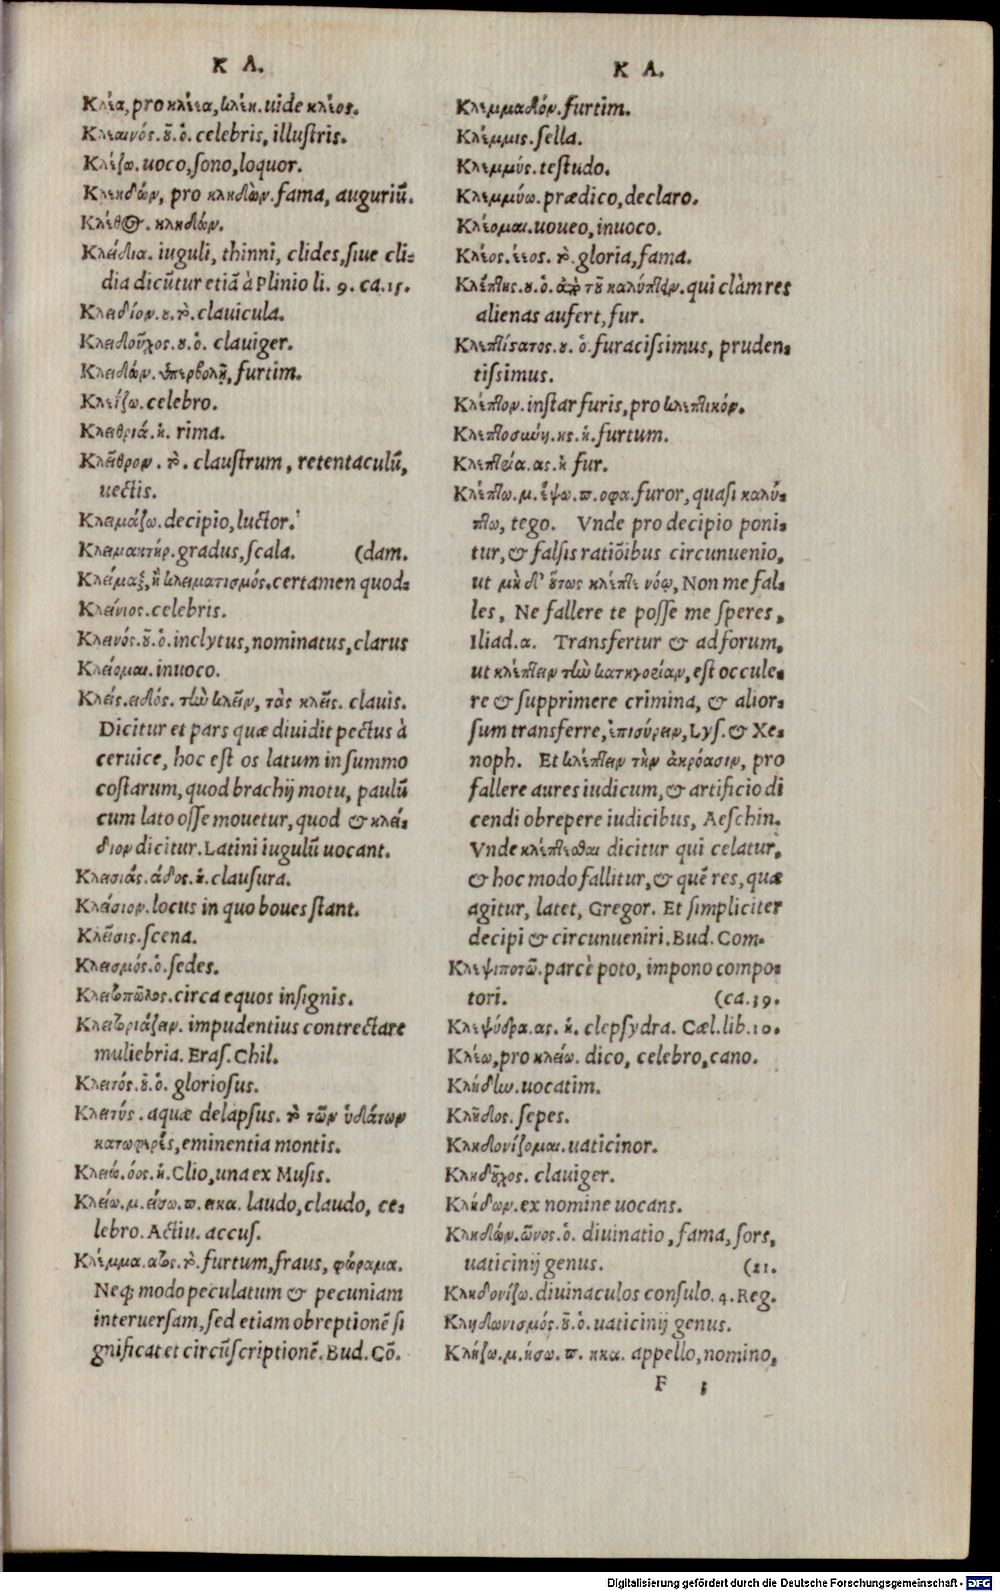 Κ Λ.
Κλέα, pro κλέεα, κλέη. uide κλέος.
Κλεεινός. οῦ. ὁ. celebris, illustris.
Κλέζω. uoco, sono, loquor.
Κλεηδών, pro κληδών. fama, auguriũ.
Κλέθος. κληδών.
Κλείδια. iuguli, thinni, clides, siue cli-
dia dicũtur etiã à Plinio li. 9. ca. 15.
Κλειδίον. ου. τὸ. clauicula.
Κλειδοῦχος. ου. ὁ. clauiger.
Κλειδών. ὑπερβολῇ, furtim.
Κλείζω. celebro.
Κλειθριά. ἡ. rima.
Κλεῖθρον. τὸ. claustrum, retentaculũ,
uectis.
Κλειμάζω. decipio, luctor.
Κλειμακτήρ. gradus, scala. (dam.
Κλείμαξ, ἢ κλειματισμός. certamen quod-
Κλείνιος. celebris.
Κλεινός. οῦ. ὁ. inclytus, nominatus, clarus
Κλείομαι. inuoco.
Κλείς. ειδός. τὴν κλεῖν, τὰς κλεῖς. clauis.
Dicitur et pars quæ diuidit pectus à
ceruice, hoc est os latum in summo
costarum, quod brachij motu, paulũ
cum lato osse mouetur, quod & κλεί-
διον dicitur. Latini iugulũ uocant.
Κλεισιάς. άδος. ἡ. clausura.
Κλείσιον. locus in quo boues stant.
Κλεῖσις. scena.
Κλεισμός. ὁ. sedes.
Κλειτοπῶλος. circa equos insignis.
Κλειτοριάζειν. impudentius contrectare
muliebria. Eras. Chil.
Κλειτός. οῦ. ὁ. gloriosus.
Κλειτύς. aquæ delapsus. τὸ τῶν ὑδάτων
κατωφερές, eminentia montis.
Κλειώ. όος. ἡ. Clio, una ex Musis.
Κλείω. μ. είσω. π. εικα. laudo, claudo, ce-
lebro. Actiu. accus.
Κλέμμα. ατος. τὸ. furtum, fraus, φώραμα.
Neq; modo peculatum & pecuniam
interuersam, sed etiam obreptionẽ si
gnificat et circũscriptionẽ. Bud. Cõ.
Κ Λ.
Κλεμμαδόν. furtim.
Κλέμμις. sella.
Κλεμμύς. testudo.
Κλεμμύω. prædico, declaro.
Κλέομαι. uoueo, inuoco.
Κλέος. έεος. τὸ. gloria, fama.
Κλέπτης. ου. ὁ. ἀπὸ τοῦ καλύπτειν. qui clàm res
alienas aufert, fur.
Κλεπτίστατος. ου. ὁ. furacissimus, pruden-
tissimus.
Κλέπτον. instar furis, pro κλεπτικόν.
Κλεπτοσύνη. ης. ἡ. furtum.
Κλεπτρία. ας. ἡ fur.
Κλέπτω. μ. έψω. π. οφα. furor, quasi καλύ-
πτω, tego. Vnde pro decipio poni-
tur, & falsis ratiõibus circunuenio,
ut μὴ δ' οὕτως κλέπτε νόῳ, Non me fal-
les, Ne fallere te posse me speres,
Iliad. α. Transfertur & ad forum,
ut κλέπτειν τὴν κατηγορίαν, est occule-
re & supprimere crimina, & alior-
sum transferre, ἐπισύρειν, Lys. & Xe-
noph. Et κλέπτειν τὴν ἀκρόασιν, pro
fallere aures iudicum, & artificio di
cendi obrepere iudicibus, Aeschin.
Vnde κλέπτεσθαι dicitur qui celatur,
& hoc modo fallitur, & quẽ res, quæ
agitur, latet, Gregor. Et simpliciter
decipi & circunueniri. Bud. Com.
Κλεψιποτῶ. parcè poto, impono compo-
tori. (ca. 39.
Κλεψύδρα. ας. ἡ. clepsydra. Cæl. lib. 10.
Κλέω, pro κλείω. dico, celebro, cano.
Κλήδην. uocatim.
Κλῆδος. sepes.
Κληδονίζομαι. uaticinor.
Κληδοῦχος. clauiger.
Κλήδων. ex nomine uocans.
Κληδών. ῶνος. ὁ. diuinatio, fama, sors,
uaticinij genus. (21.
Κληδονίζω. diuinaculos consulo. 4. Reg.
Κληδωνισμός. οῦ. ὁ. uaticinij genus.
Κλήζω. μ. ήσω. π. ηκα. appello, nomino,
F 5
Digitalisierung gefördert durch die Deutsche Forschungsgemeinschaft - DFG